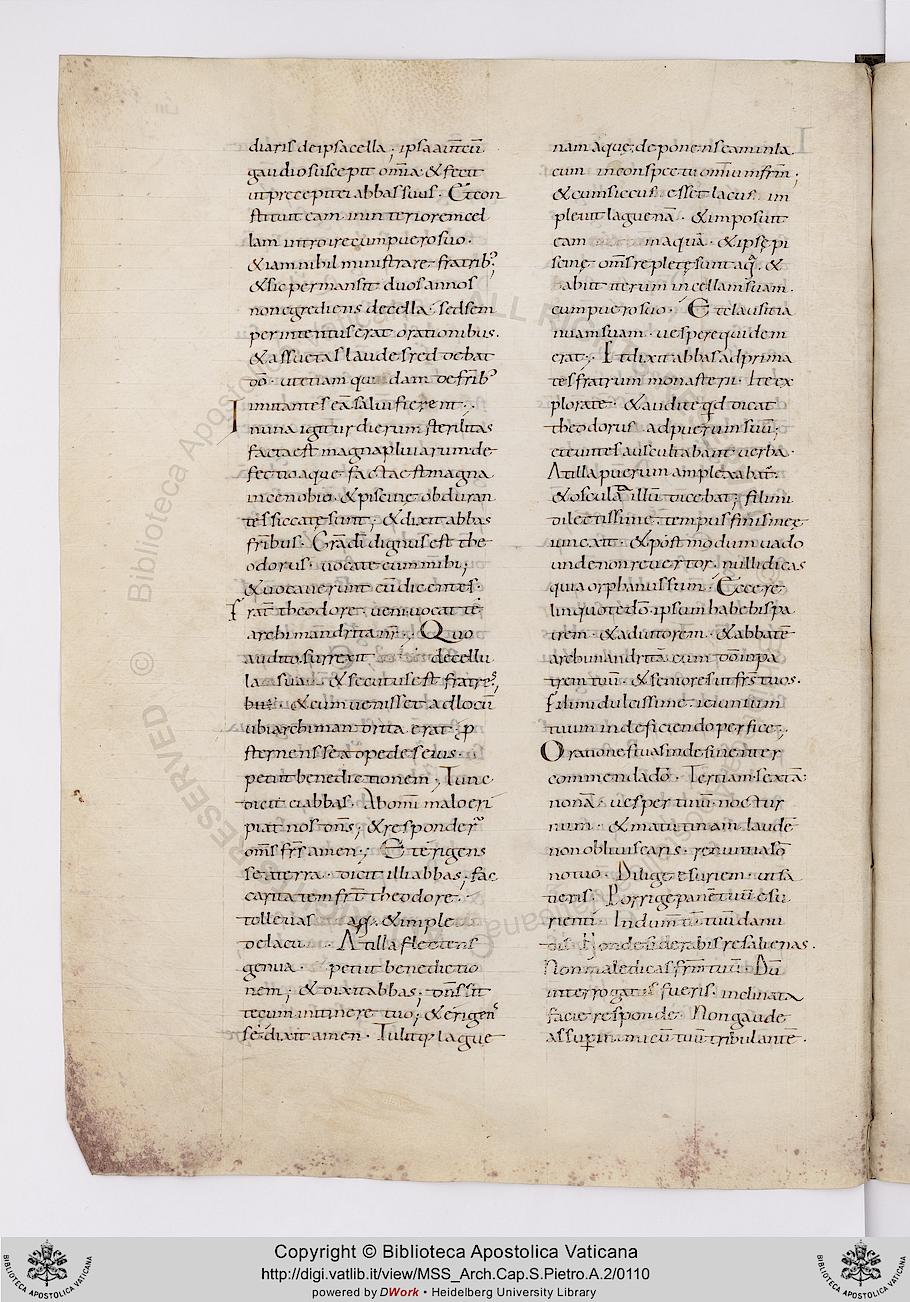 diaris deipsacella ; ipsa autẽ cũ
gaudio suscepit omĩa & fecit
ut precepit ei abbas suus . Et con
stituit eam in interiorem cel
lam introire cum puero suo .
& iam nihil ministrare fratrib;
& sic permansit duos annos
non egrediens de cella . sed sem
per intentus erat orationibus .
& assuetas laudes reddebat
dõ . ut etiam quidam de frĩb;
imitantes eã salui fierent .
In una igitur dierum sterilitas
facta est magna pluuiarum de
fectioque facta est magna
in cenobio . & piscinę obduran
tes siccatę sunt ; & dixit abbas
fribus . Grãdi dignus est the
odorus . uocate eum mihi ;
& uocauerunt eũ dicentes .
Frat̃ theodore . ueni uocat te
archimandrita nr̃ . Quo
audito surrexit de cellu
la sua . & secutus est fratres
& cum uenisset ad locũ
ubi archimandrita erat . p̱
sternens se ad pedes eius .
petiit benedictionem . Tunc
dicit ei abbas . Ab omi malo eri
piat nos dñs ; & responder̃
om̃s frs̃ amen ; Et erigens
se a terra . dicit illi abbas ; fac
caritatem frat̃ theodore .
tolle uas aq̃ . & imple
de lacu . At illa flectens
genua . petiit benedictio
nem ; & dixit abbas ; dñs sit
tecum in itinere tuo ; & erigens
se . dixit amen . Tulitq; lague
nam aquę ; deponens eam in la
cum in conspectu omniũ fratrũ ;
& cum siccus esset lacus . im
pleuit laguenã . & imposuit
eam in aquã . & ipsę pi
scinę om̃s repletę sunt aq̃ . &
abiit iterum in cellam suam .
cum puero suo . Et clausit ia
nuam suam . uespere quidem
erat ; Et dixit abbas ad prima
tes fratrum monasterii . Ite ex
plorate . & audite qd dicat
theodorus . ad puerum suũ ;
et euntes auscultabant uerba .
At illa puerum amplexabat̃ .
& osculãs illũ dicebat ; fili mi
dilectissime . tempus finis meę
uitę exit . & post modum uado
unde non reuertor . nulli dicas
quia orphanus sum . Ecce re
linquo te dõ . ipsum habebis pa
trem . & adiutorem . & abbatẽ
archimandritã eum dõ in pa
trem tuũ . & seniores ut frs̃ tuos .
Fili mi dulcissime . ieiunium
tuum in deficiendo perfice .
Oratione tuas indesinenter
commendã dõ . Tertiam . sextã
nonã . uespertinũ noctur
num . & matutinam . laudẽ
non obliuiscaris . renuntia dõ
notuo . Dilige esuriem . ut sa
tieris . Porrige panẽ tuũ esu
rienti . Indumtũ tuũ da nu
dis . Non desiderabis res alienas .
Non maledicas frat̃rẽ tuũ . Dũ
interrogatus fueris . inclinata
facie responde . Non gaude
as sup̱ inimicũ tuũ tribulantẽ .
Copyright © Biblioteca Apostolica Vaticana
http://digi.vatlib.it/view/MSS_Arch.Cap.S.Pietro.A.2/0110
powered by DWork • Heidelberg University Library